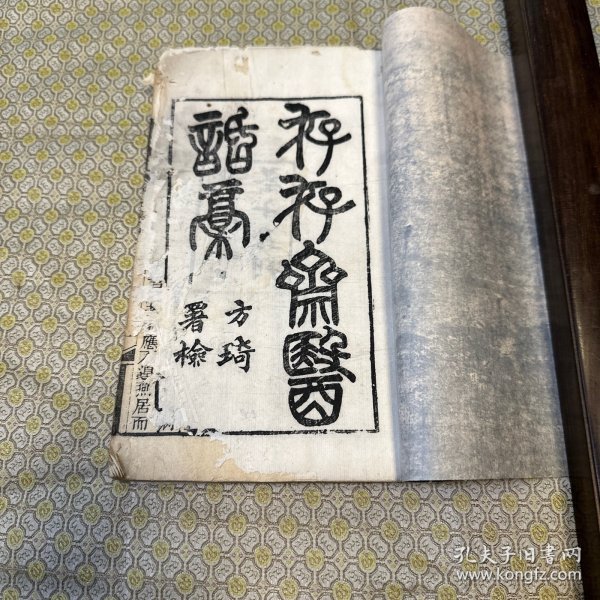 存存齋醫
話稾
方琦
署檢
應
居而
孔夫子旧書网
www.kongfz.com